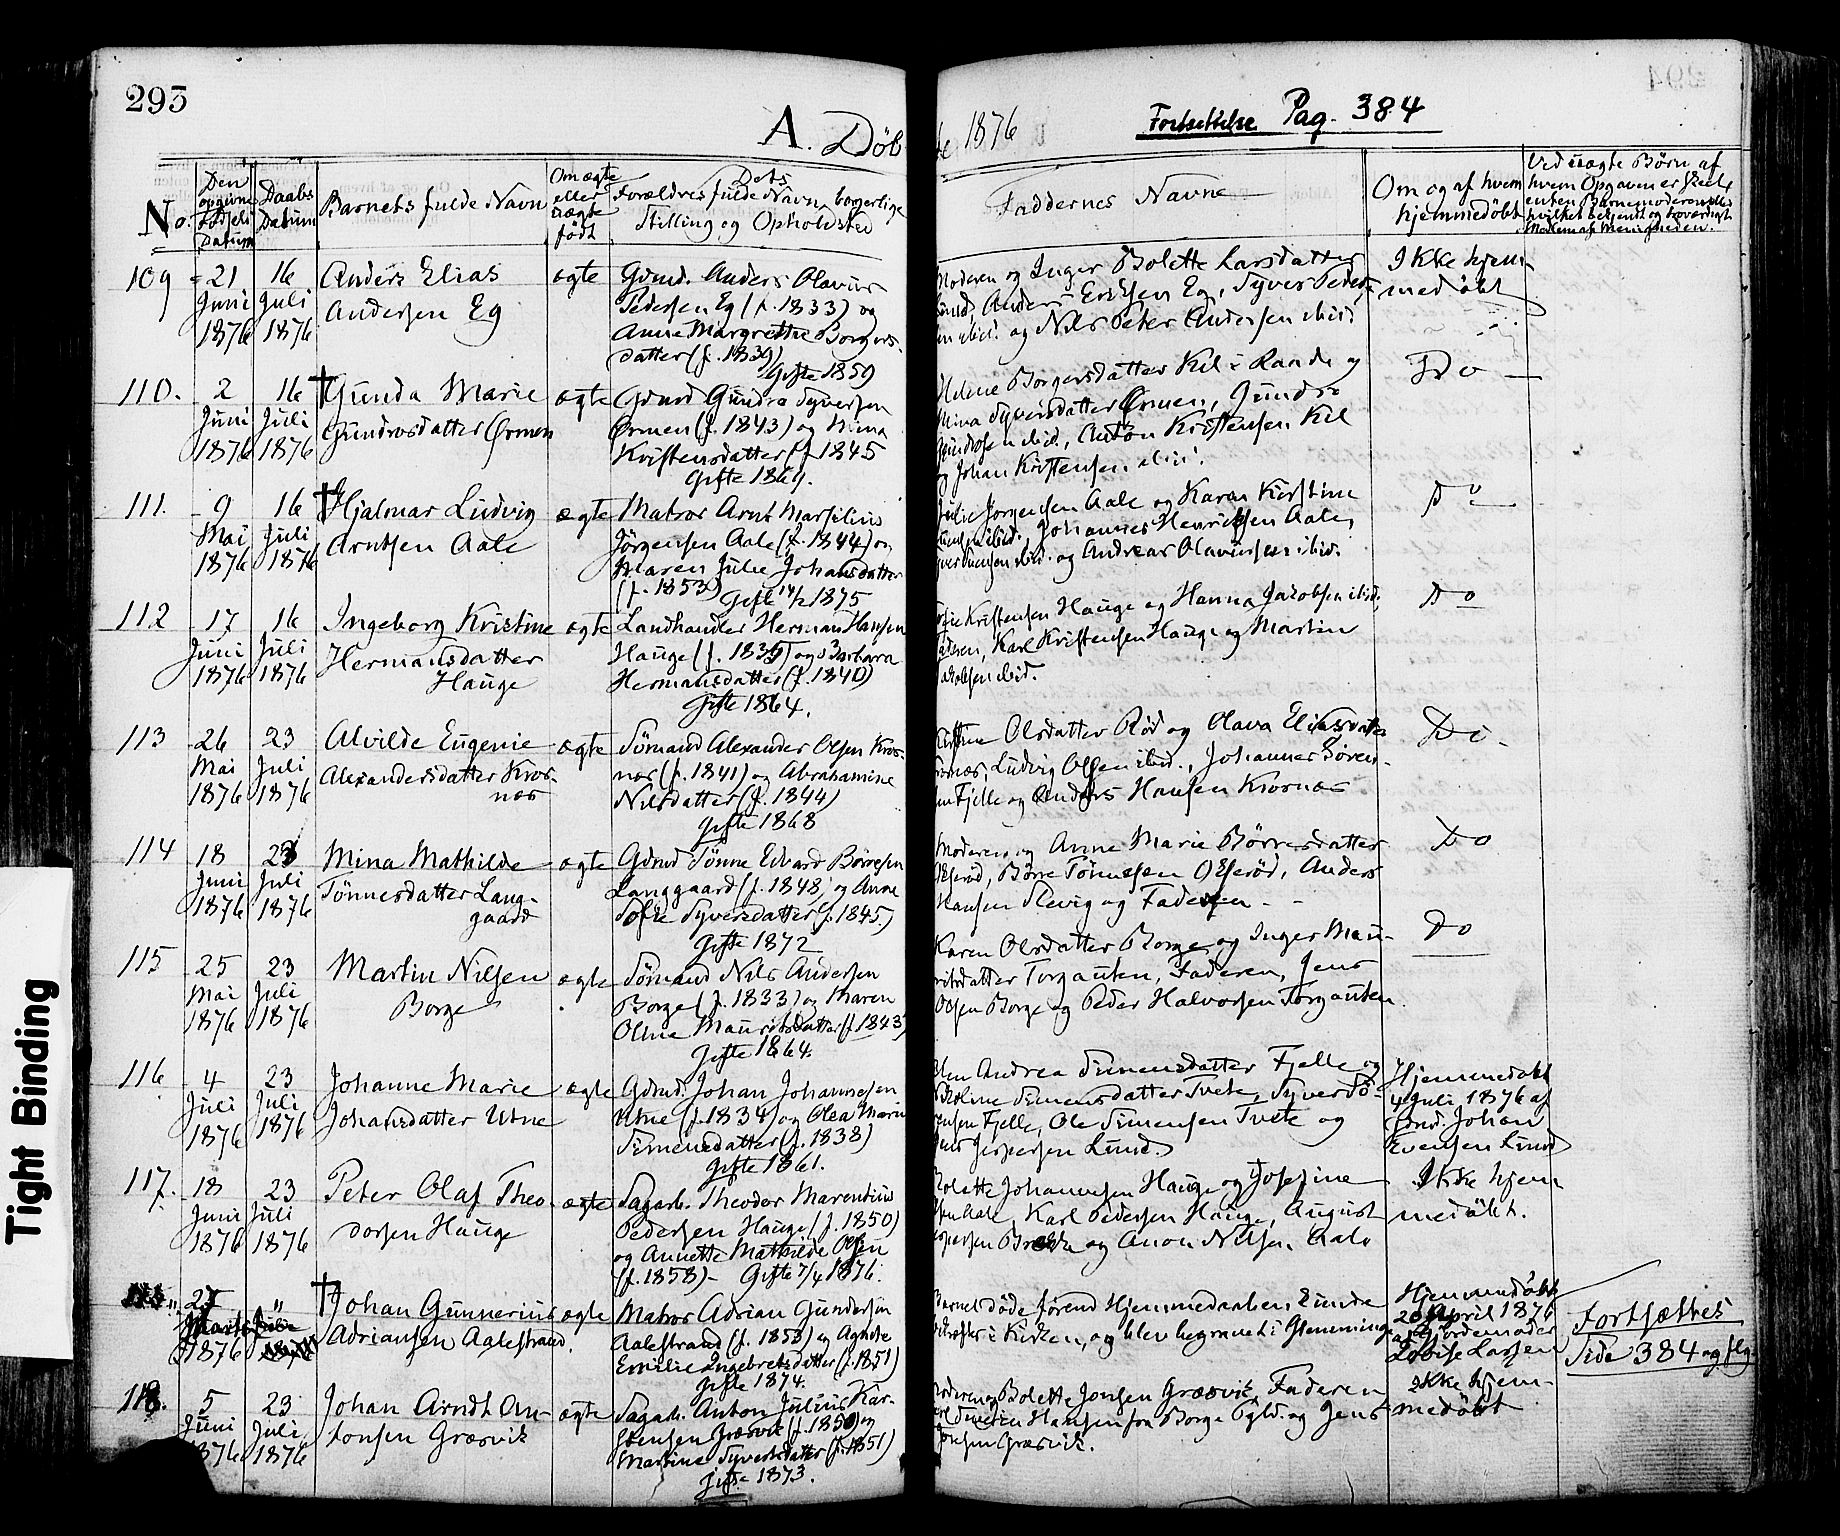 293
A. Døbte 1876
Fortsettelse Pag. 384
No.
Den opgivne Fødsels Datum
Daabs Datum
Barnets fulde Navn
Om ægte eller uægte født
Forældres fulde Navn, Dets borgerlige Stilling og Opholdsted
Faddernes Navne
Om og af hvem hjemmedøbt
Ved uægte Børn af hvem Opgaven er skeet, enten Barnemoderen eller
109
21 Juni 1876
16 Juli 1876
Anders Elias
Andersen Eg
ægte
Gdmd. Anders Olavus
Pedersen Eg (f. 1833) og
Anne Margrethe Borgers-
datter (f. 1839)
Gifte 1859
Moderen og Inger Bolette Larsdatter
Anders Eriksen Eg, Syver Peder-
sen ibid. og Nils Peter Andersen ibid.
Ikke hjem-
medøbt
110.
2 Juni 1876
16 Juli 1876
† Gunda Marie
Gundrosdatter Ørmen
ægte
Gdmd Gundro Syversen
Ørmen (f. 1843) og Mina
Kristensdatter (f. 1845
Gifte 1869.
Helene Borgersdatter Kil i Rande og
Mina Syversdatter Ørmen, Gundro
ibid., Anton Kristensen Kil
og Johan Kristensen ibid.
Do
111.
9 Mai 1876
16 Juli 1876
† Hjalmar Ludvig
Arntsen Aale
ægte
Matros Arnt Marselius
Jørgensen Aale (f. 1844) og
Maren Julie Johansdatter
(f. 1853) Gifte 1875
Julie Jørgensen Aale og Karen Kirstine
ibid., Johannes Henriksen Aale,
ibid. og Andreas Olavesen ibid.
Do
112
17 Juni 1876
16 Juli 1876
Ingeborg Kristine
Hermansdatter
Hauge
ægte
Landhandler Herman Hansen
Hauge (f. 1839) og Barbara
Hermansdatter (f. 1840)
Gifte 1864.
Kristensen Hauge og Hanna Jacobsen ibid,
Faderen, Karl Kristensen Hauge og Martin
Jakobsen ibid.
Do
113
26 Mai 1876
23 Juli 1876
Alvilde Eugenie
Alexandersdatter Kros-
næs
ægte
Sømand Alexander Olsen Kros-
næs (f. 1841) og Abrahamine
Nilsdatter (f. 1844)
Gifte 1868
Olsdatter Rød og Olava Eliasdatter
Krosnæs, Ludvig Olsen ibid., Johannes Søren-
sen Fjelle og Anders Hansen Krosnæs
Do
114
18 Juni 1876
23 Juli 1876
Mina Mathilde
Tønnesdatter Lang-
gaard
ægte
Gdmd Tønne Edvard Børresen
Langgaard (f. 1848) og Anne
Sofie Syversdatter (f. 1845.)
Gifte 1872
Moderen og Anne Marie Børresdatter
Oserød, Børre Tønnesen Oserød, Anders
Hansen Slevig og Faderen
Do
115
25 Mai 1876
23 Juli 1876
Martin Nilsen
Borge
ægte
Sømand Nils Andersen
Borge (f. 1833) og Maren
Oline Mauritsdatter (f. 1843)
Gifte 1864.
Karen Olsdatter Borge og Inger Mau-
ritsdatter Torgauten, Faderen, Jens
Olsen Borge og Peder Halvorsen Torgauten
Do
116
4 Juli 1876
23 Juli 1876
Johanne Marie
Johansdatter Utne
ægte
Gdmd. Johan Johannesen
Utne (f. 1834) og Olea Marie
Simensdatter (f. 1838)
Gifte 1861.
Andrea Simensdatter Fjelle og
Simensdatter Tvete, Syver Sø-
rensen Fjelle, Ole Simensen Tvete og
Jens Jespersen Lund.
Hjemmedøbt
4 Juli 1876 af
Gmd. Johan
Evensen Lund
117.
18 Juni 1876
23 Juli 1876
Peter Olaf Theo-
dorsen Hauge
ægte
Sagarb. Theodor Marentius
Pedersen Hauge (f. 1850)
og Annette Mathilde Olsen
(f. 1858) - Gifte 7/4 1876.
Bolette Johannesen Hauge og Josefine
Aale, Karl Pedersen Hauge, August
Jespersen og Anon Nilsen Aale
Ikke hjem-
medøbt.
"
27 Marts 1876
"
† Johan Gunnerius
Adriansen Aalestrand.
ægte
Matros Adrian Gundersen
Aalestrand (f. 1853) og Agnete
Emilie Ingebretsdatter (f. 1851)
Gifte 1874.
Barnet døde førend Hjemmedaaben kunde
bekræftes i Kirken, og blev begravet i Glemminge
Hjemmedøbt
20 April 1876
af Gjordemoder
Lovise Larsen
Fortsættes
Side 384 og flg
118.
5 Juni 1876
23 Juli 1876
Johan Arndt An-
tonsen Græsvik
ægte
Sagarb. Anton Julius Kar-
stensen Græsvik (f. 1850) og
Martine Syvertsdatter (f. 1851)
Gifte 1873.
Moderen og Bolette Jonsen Græsvik, Faderen
Hansen fra Borge Pgld. og Jens
Jonsen Græsvik.
Ikke hjem-
medøbt
Tight Binding